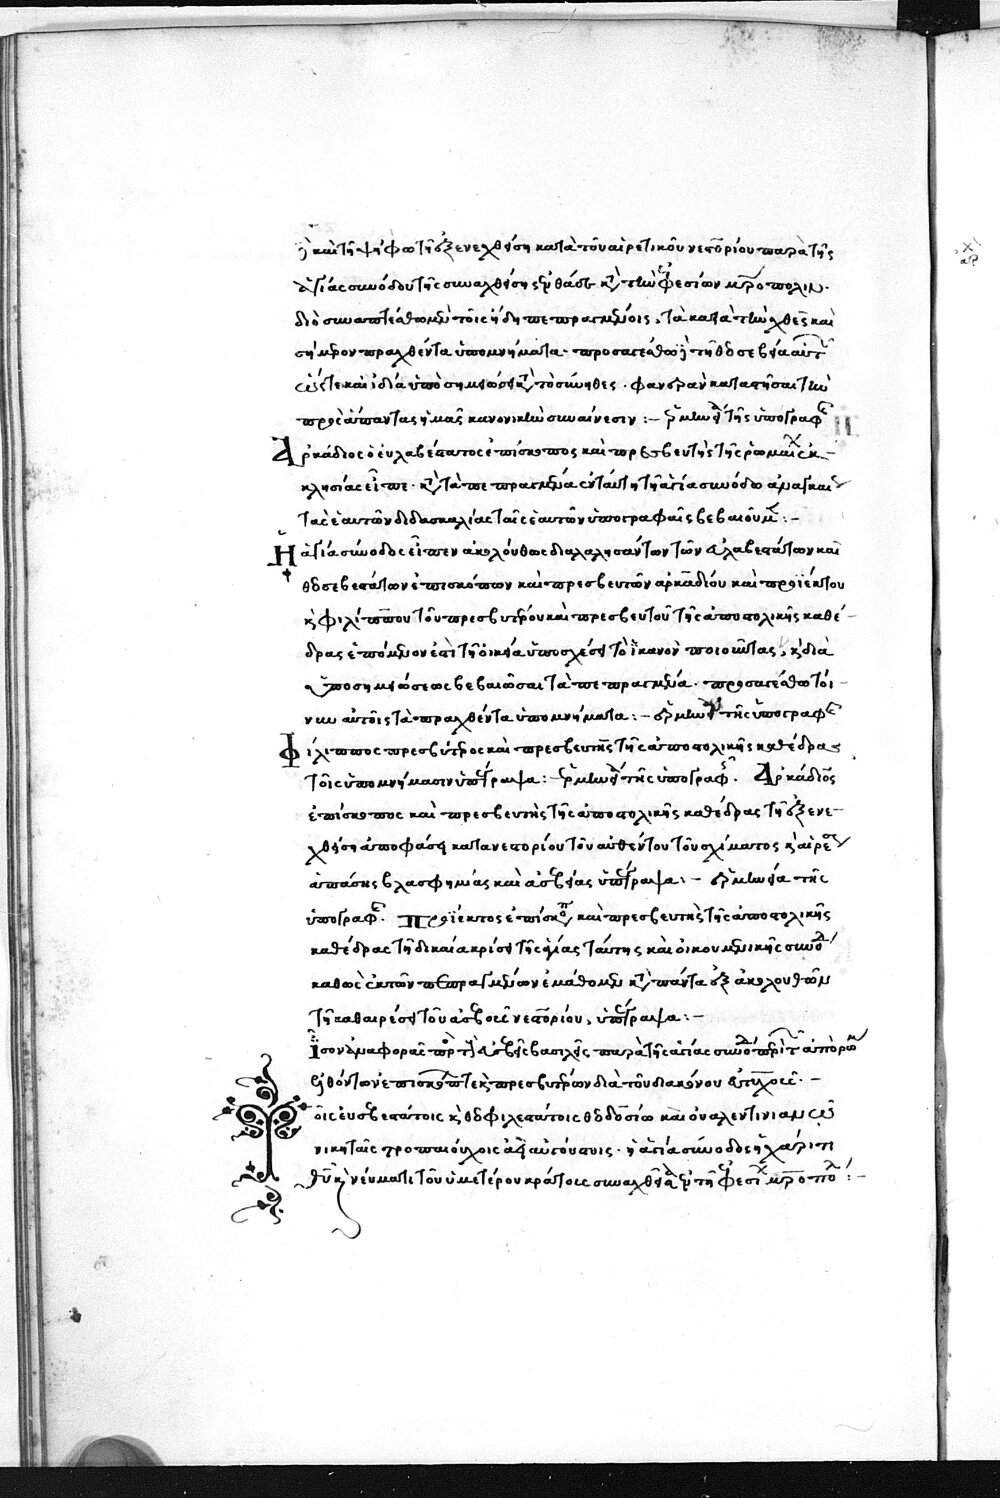 καὶ τῇ ψήφῳ τῇ ἐξενεχθείσῃ κατὰ τοῦ αἱρετικοῦ νεστορίου παρὰ τῆς
ἁγίας συνόδου τῆς συναχθείσης ἐνθάδε κατὰ τὴν ἐφεσίων μητρόπολιν.
διὸ συναπτέσθω μὲν τοῖς ἤδη πεπραγμένοις, τὰ κατὰ τὴν χθὲς καὶ
σήμερον πραχθέντα ὑπομνήματα. προσαγέσθω τῇ θεοσεβείᾳ αὐτῶν
ὥστε καὶ ἰδίᾳ ὑποσημειώσει κατὰ τὸ σύνηθες. φανερὰν καταστῆσαι τὴν
πρὸς ἅπαντας ἡμᾶς κανονικὴν συναίνεσιν :– ἑρμηνεία τῆς ὑπογραφῆς
Ἀρκάδιος ὁ εὐλαβέστατος ἐπίσκοπος καὶ πρεσβευτὴς τῆς ῥωμαίων ἐκ–
κλησίας εἶπε. κατὰ τὰ πεπραγμένα ἐν ταύτῃ τῇ ἁγίᾳ συνόδῳ ἀναγκαίως
τὰς ἑαυτῶν διδασκαλίας ταῖς ἑαυτῶν ὑπογραφαῖς βεβαιοῦμεν :–
Ἡ ἁγία σύνοδος εἶπεν ἀκολούθως διαλαλησάντων τῶν εὐλαβεστάτων καὶ
θεοσεβεστάτων ἐπισκόπων καὶ πρεσβευτῶν ἀρκαδίου καὶ προϊέκτου
καὶ φιλίππου τοῦ πρεσβυτέρου καὶ πρεσβευτοῦ τῆς ἀποστολικῆς καθέ–
δρας ἑπόμενον ἐστὶ τῇ οἰκείᾳ ὑποσχέσει τὸ ἱκανὸν ποιοῦντας, καὶ διὰ
ὑποσημειώσεως βεβαιῶσαι τὰ πεπραγμένα. προσαγέσθω τοί–
νυν αὐτοῖς τὰ πραχθέντα ὑπομνήματα :– ἑρμηνεία τῆς ὑπογραφῆς
Φίλιππος πρεσβύτερος καὶ πρεσβευτὴς τῆς ἀποστολικῆς καθέδρας
τοῖς ὑπομνήμασιν ὑπέγραψα :– ἑρμηνεία τῆς ὑπογραφῆς. Ἀρκάδιος
ἐπίσκοπος καὶ πρεσβευτὴς τῆς ἀποστολικῆς καθέδρας τῇ ἐξενε–
χθείσῃ ἀποφάσει κατὰ νεστορίου τοῦ αὐθέντου τοῦ σχίσματος καὶ αἱρέσεως
ἁπάσης βλασφημίας καὶ ἀσεβείας ὑπέγραψα :– ἑρμηνεία τῆς
ὑπογραφῆς. Προϊέκτος ἐπίσκοπος καὶ πρεσβευτὴς τῆς ἀποστολικῆς
καθέδρας τῇ δικαίᾳ κρίσει τῆς ἁγίας ταύτης καὶ οἰκουμενικῆς συνόδου
καθὼς ἐκ τῶν πεπραγμένων ἐμάθομεν κατὰ πάντα ἐξακολουθῶν
τῇ καθαιρέσει τοῦ ἀσεβοῦς νεστορίου, ὑπέγραψα :–
Ἴσον ἀναφορᾶς πρὸς τοὺς εὐσεβεῖς βασιλεῖς παρὰ τῆς ἁγίας συνόδου
ἐλθόντων ἐπισκόπων τε καὶ πρεσβυτέρων διὰ τοῦ διακόνου εὐτυχοῦς. –
οῖς εὐσεβεστάτοις καὶ θεοφιλεστάτοις θεοδοσίῳ καὶ οὐαλεντινιανῷ
νικηταῖς τροπαιούχοις ἀεὶ αὐγούστοις. ἡ ἁγία σύνοδος ἡ χάριτι
θεοῦ καὶ νεύματι τοῦ ὑμετέρου κράτους συναχθεῖσα ἐν τῇ ἐφεσίων μητροπόλει :–